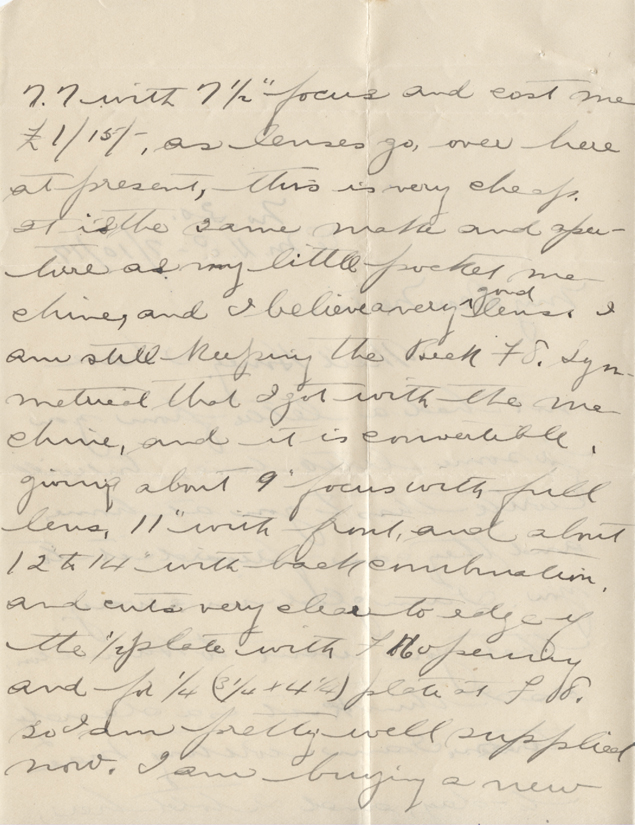 7.7 with 7 1/2" focus and cost me
£1/15/-, as lenses go, over here
at present, this is very cheap.
It is the same make and aper-
ture as my little pocket me-
chine, and I believe a very good lense I
am still keeping the Beck F8. Sym-
metrical that I got with the me-
chine, and it is convertible,
giving about 9" focus with full
lens, 11" with front, and about
12" to 14" with back combination,
and cuts very clear to edge of
the 1/2 plate with F16 opening
and for 1/4 (3 1/4 x 4 1/4) plate at F 8.
so I am pretty well supplied
now. I am buying a new